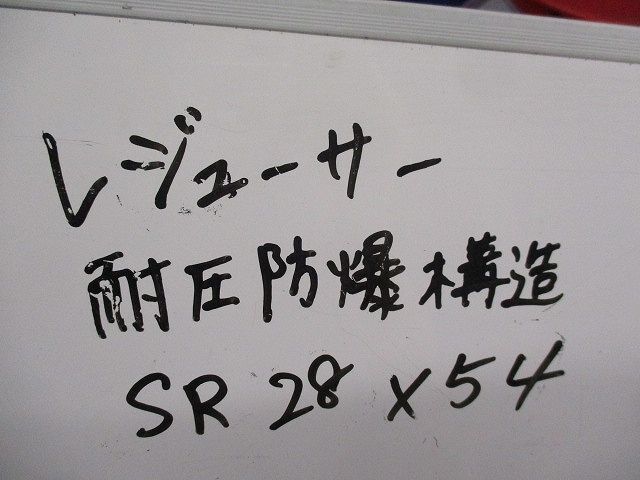 レジューサー
耐圧防爆構造
SR 28 × 54